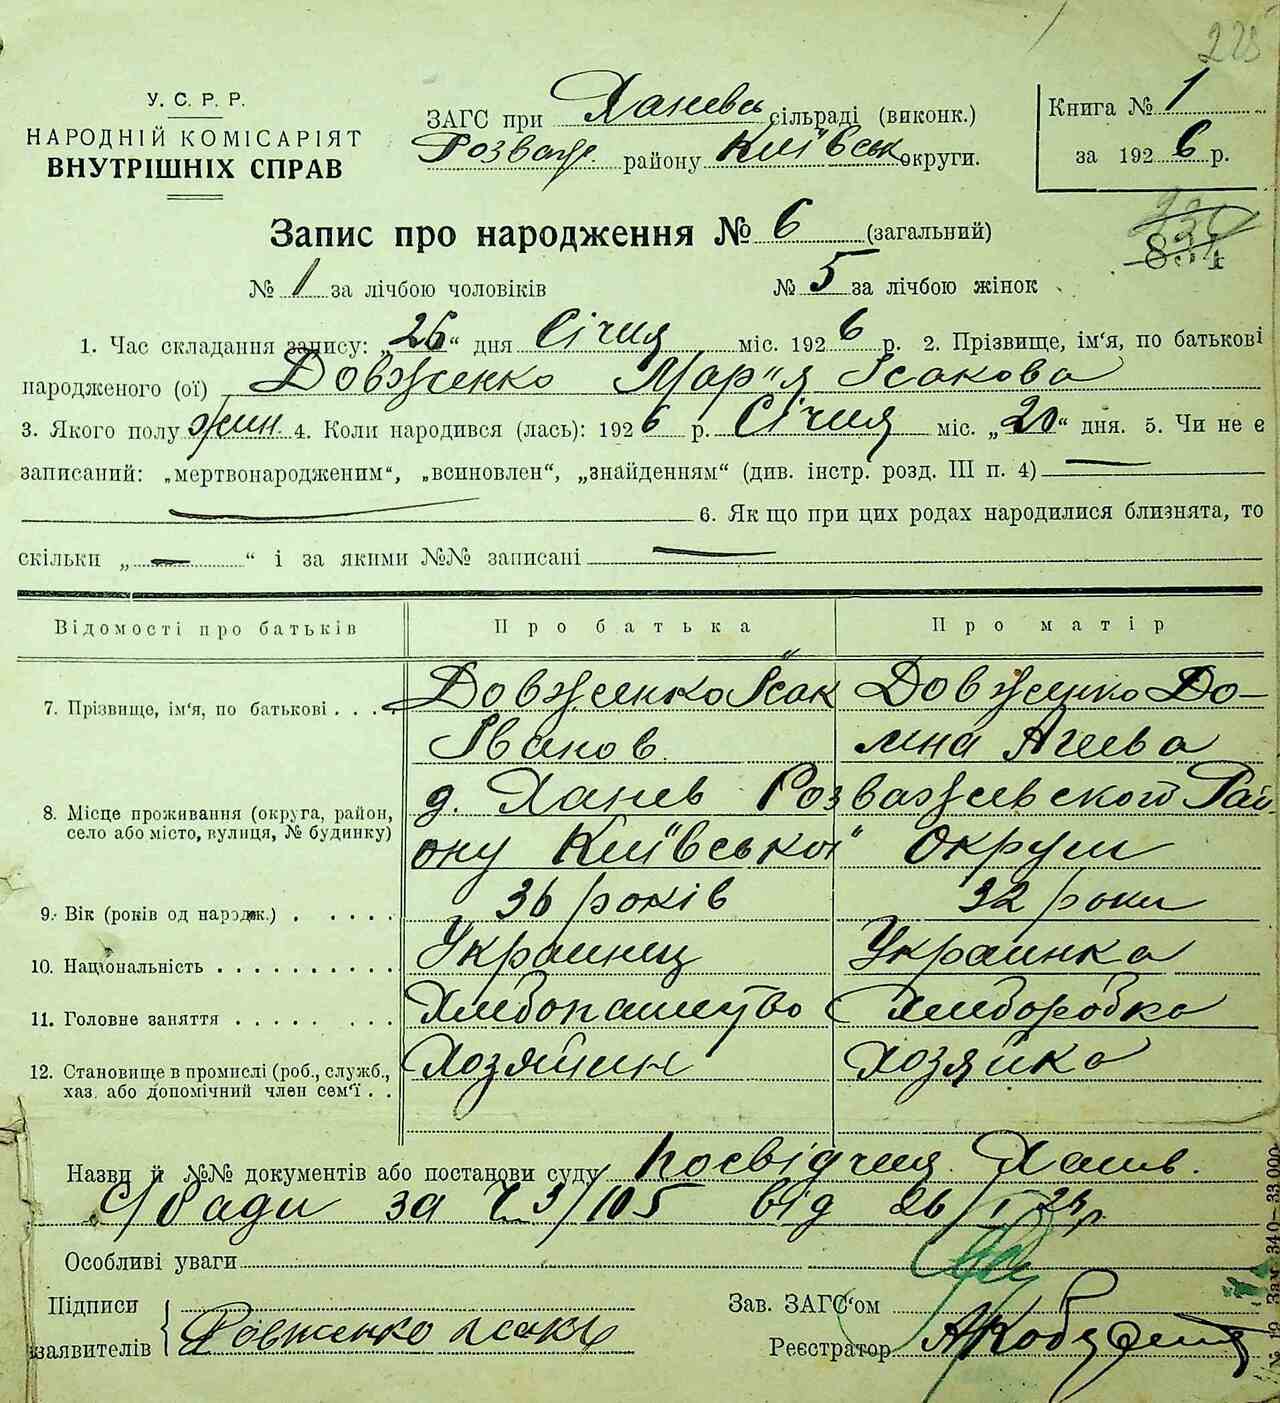 225
У. С. Р. Р.
НАРОДНІЙ КОМІСАРІЯТ
ВНУТРІШНІХ СПРАВ
ЗАГС при Ханевсь сільраді (виконк.)
Розваж. району Київськ округи.
Книга № 1
за 1926 р.
Запис про народження № 6 (загальний)
№ 1 за лічбою чоловіків № 5 за лічбою жінок
1. Час складання запису: „26“ дня Січня міс. 1926 р. 2. Прізвище, ім'я, по батькові
народженого (ої) Довженко Мар'я Ісакова
3. Якого полу жин. 4. Коли народився (лась): 1926 р. Січня міс. „20“ дня. 5. Чи не є
записаний: „мертвонародженим“, „всиновлен“, „знайденням“ (див. інстр. розд. III п. 4) —
— 6. Як що при цих родах народилися близнята, то
скільки „—“ і за якими №№ записані —
Відомості про батьків Про батька Про матір
7. Прізвище, ім'я, по батькові . . . . Довженко Ісак Іванов. Довженко До-
мна Агиева
8. Місце проживання (округа, район,
село або місто, вулиця, № будинку)
д. Ханев Розважевского Рай
ону Київської Округи
9. Вік (років од народж.) . . . . . 36 років 32 роки
10. Національність . . . . . . . . . . Украинец Украинка
11. Головне заняття . . . . . . . . . Хлебопашество Хлиборобка
12. Становище в промислі (роб., служб.,
хаз. або допомічний член сем'ї . . Хозяинн Хозяйка
Назви й №№ документів або постанови суду Посвідчия Ханив.
С/ради за ч. 3/105 від 26/I 26р.
Особливі уваги
Підписи
заявителів
Довженко Исак
Зав. ЗАГС'ом
Реєстратор